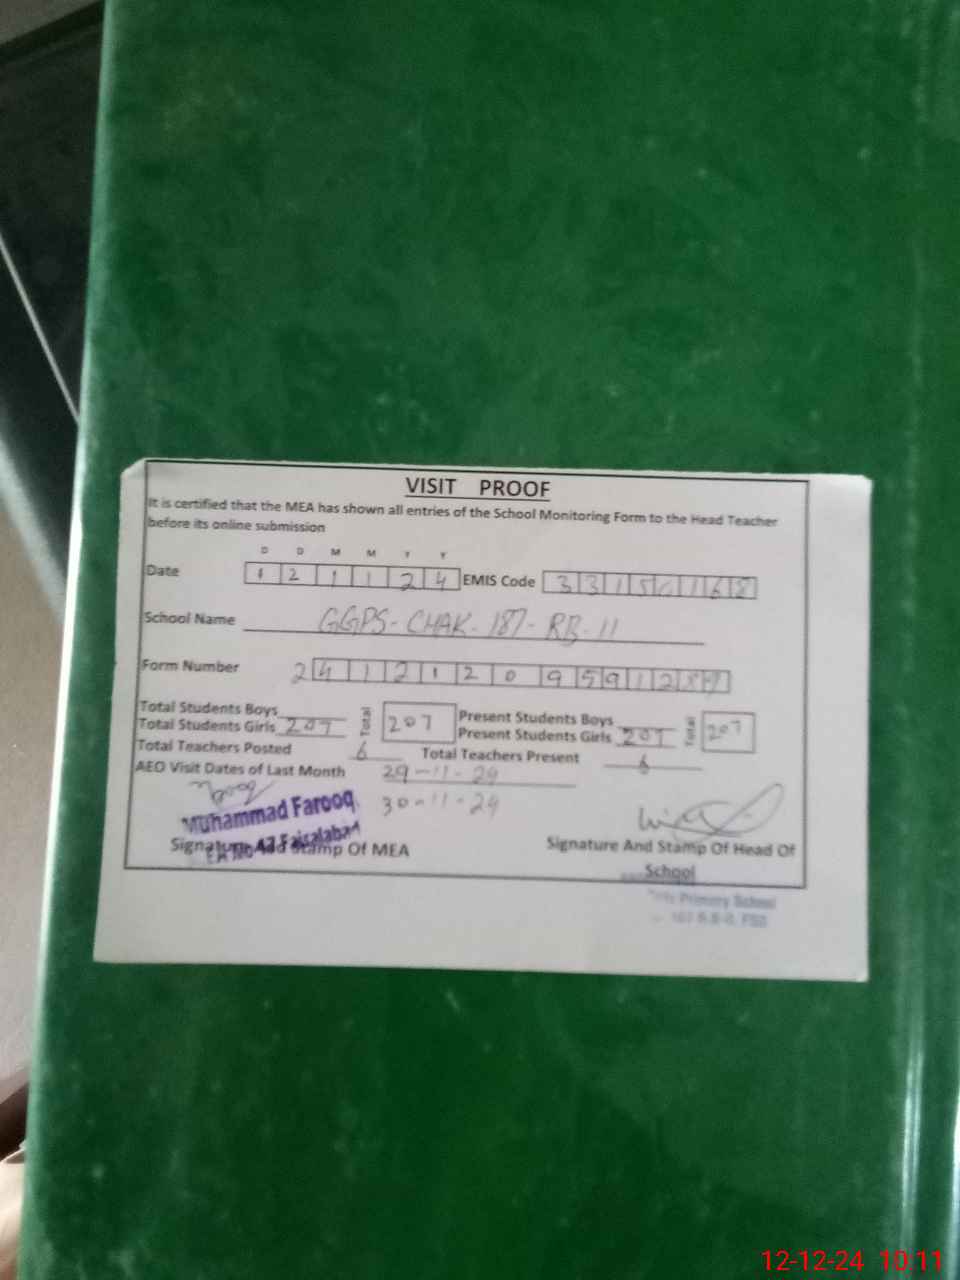 VISIT PROOF
It is certified that the MEA has shown all entries of the School Monitoring Form to the Head Teacher
before its online submission
D D M M Y Y
Date 1 2 1 1 2 4 EMIS Code 3 3 1 5 0 1 6 8
School Name GGPS-CHAK-187-RB-11
Form Number 2 4 1 2 1 2 0 9 5 9 1 2 8 7
Total Students Boys Total 207 Present Students Boys Total 207
Total Students Girls 207 Present Students Girls 207
Total Teachers Posted 6 Total Teachers Present 6
AEO Visit Dates of Last Month 29-11-24
30-11-24
Muhammad Farooq
Faisalabad
Signature And Stamp Of MEA Signature And Stamp Of Head Of
School
Primary School
12-12-24 10:11